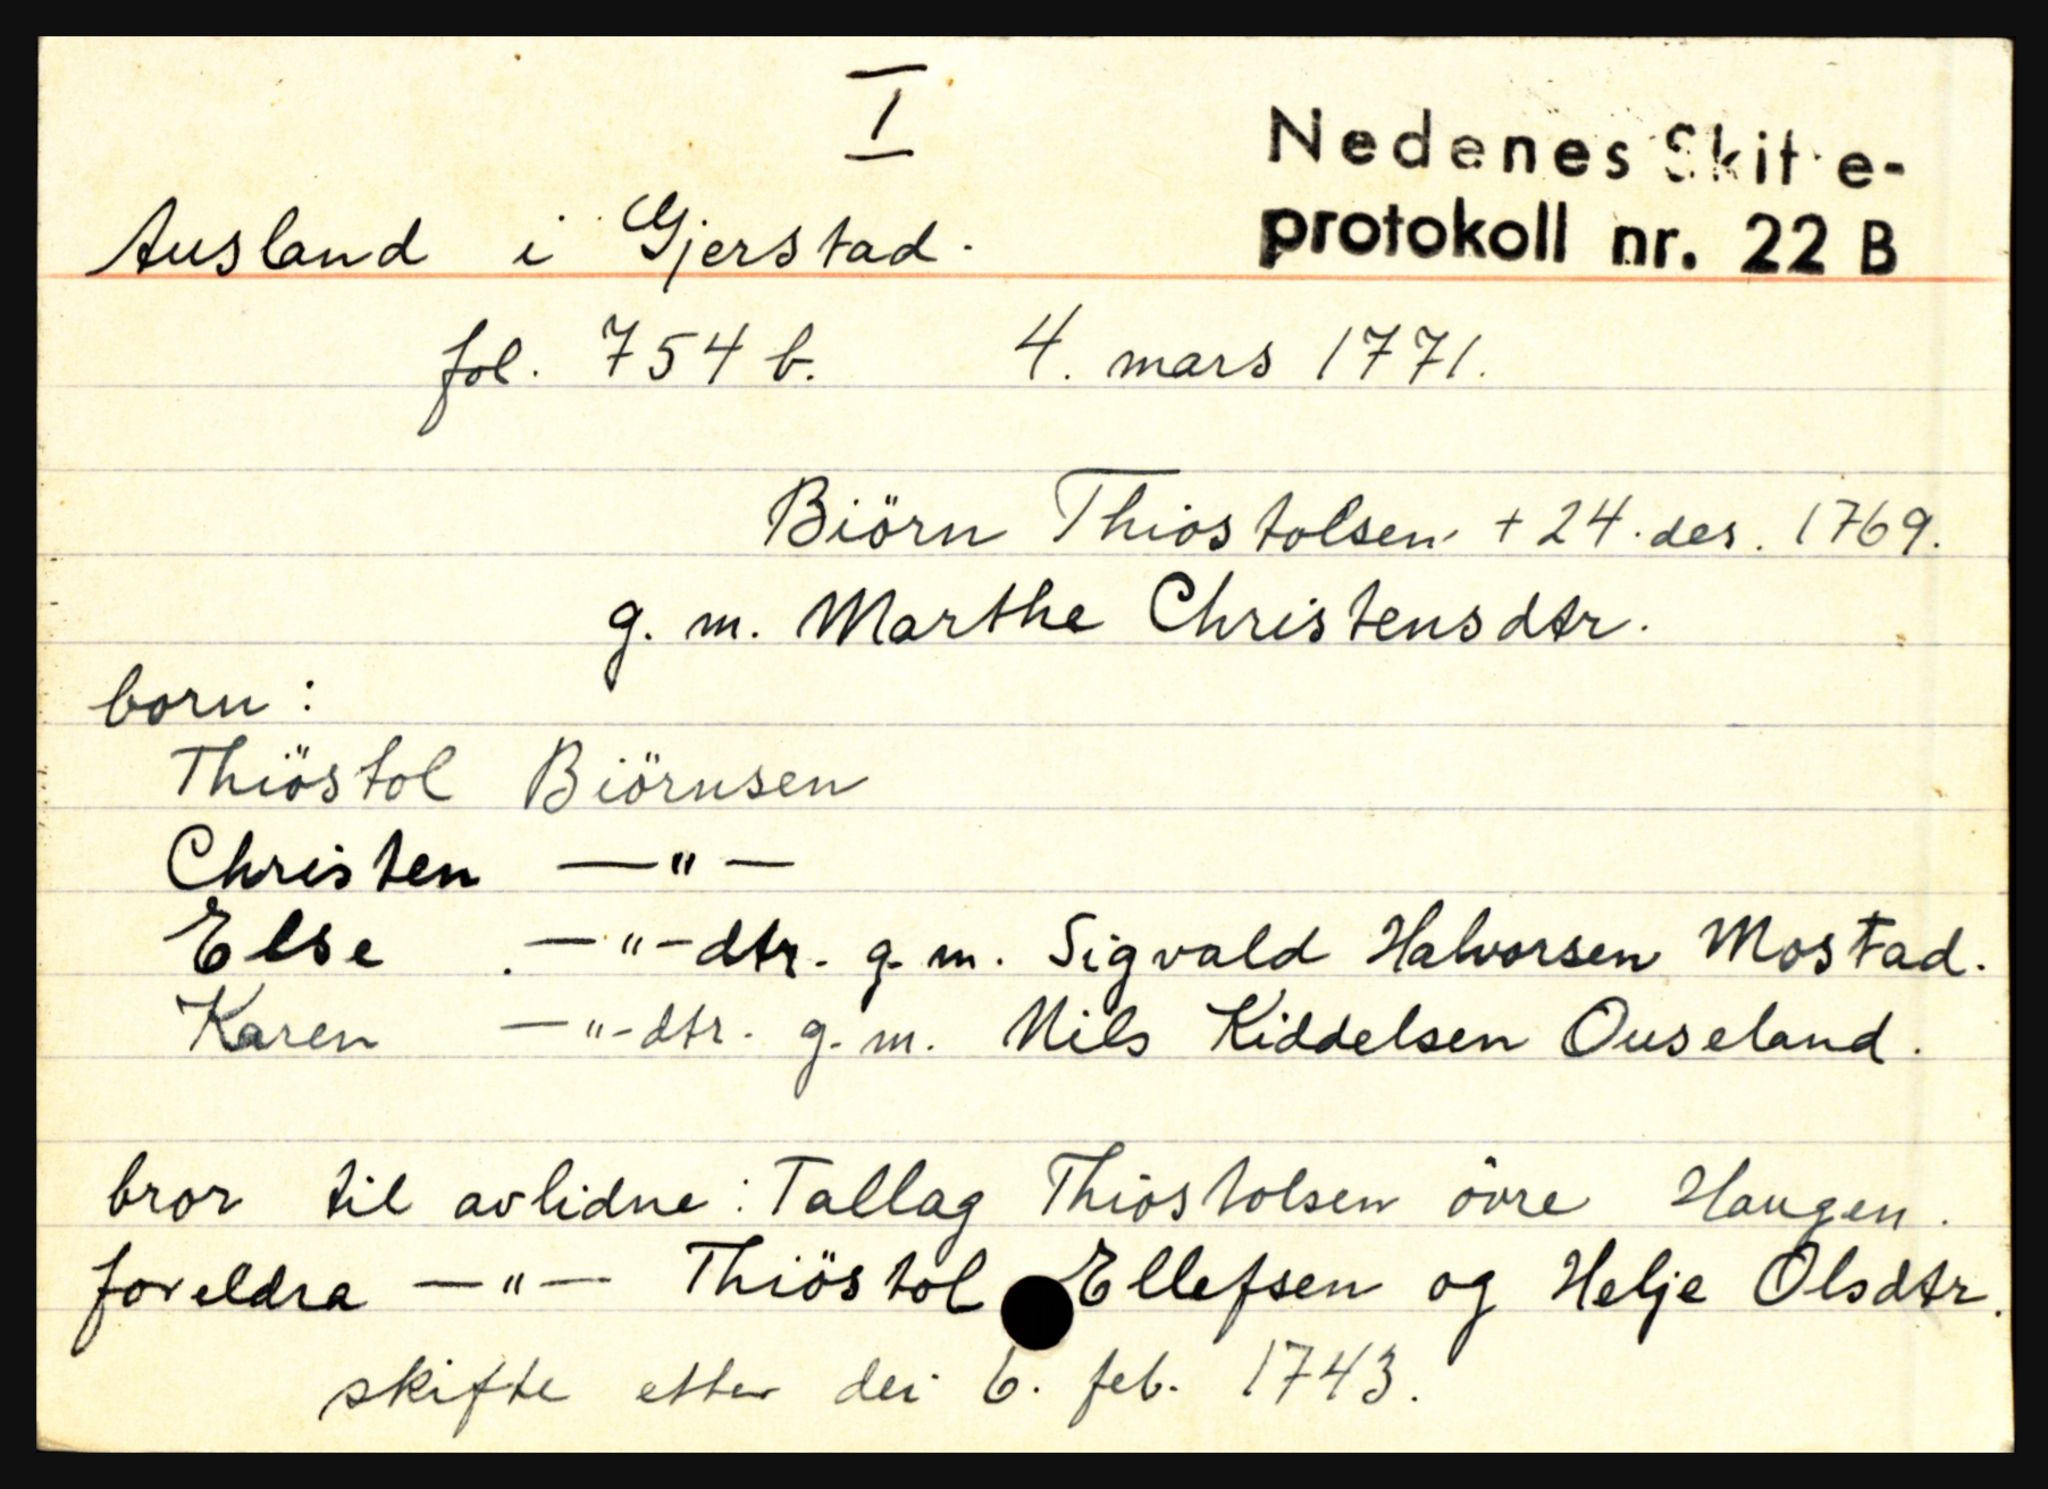 I
Nedenes Skifte-
protokoll nr. 22 B
Ausland i Gjerstad.
fol. 754 b. 4. mars 1771.
Biörn Thiostolsen + 24. des. 1769.
g. m. Marthe Christensdtr.
born:
Thiöstol Biörnsen
Christen —"—
Else —"—dtr. g. m. Sigvald Halvorsen Mostad.
Karen —"-dtr. g. m. Nils Kiddelsen Ouseland.
bror til avlidne: Tallag Thiostolsen övre Haugen.
foreldra —"— Thiöstol Ellefsen og Helje Olsdtr.
skifte etter dei 6. feb. 1743.